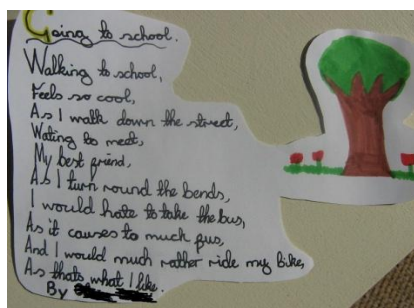 Going to school.
Walking to school,
Feels so cool,
As I walk down the street,
Wating to meet,
My best friend,
As I turn round the bends,
I would hate to take the bus,
As it causes to much fus,
And I would much rather ride my bike,
As thats what I like.
By